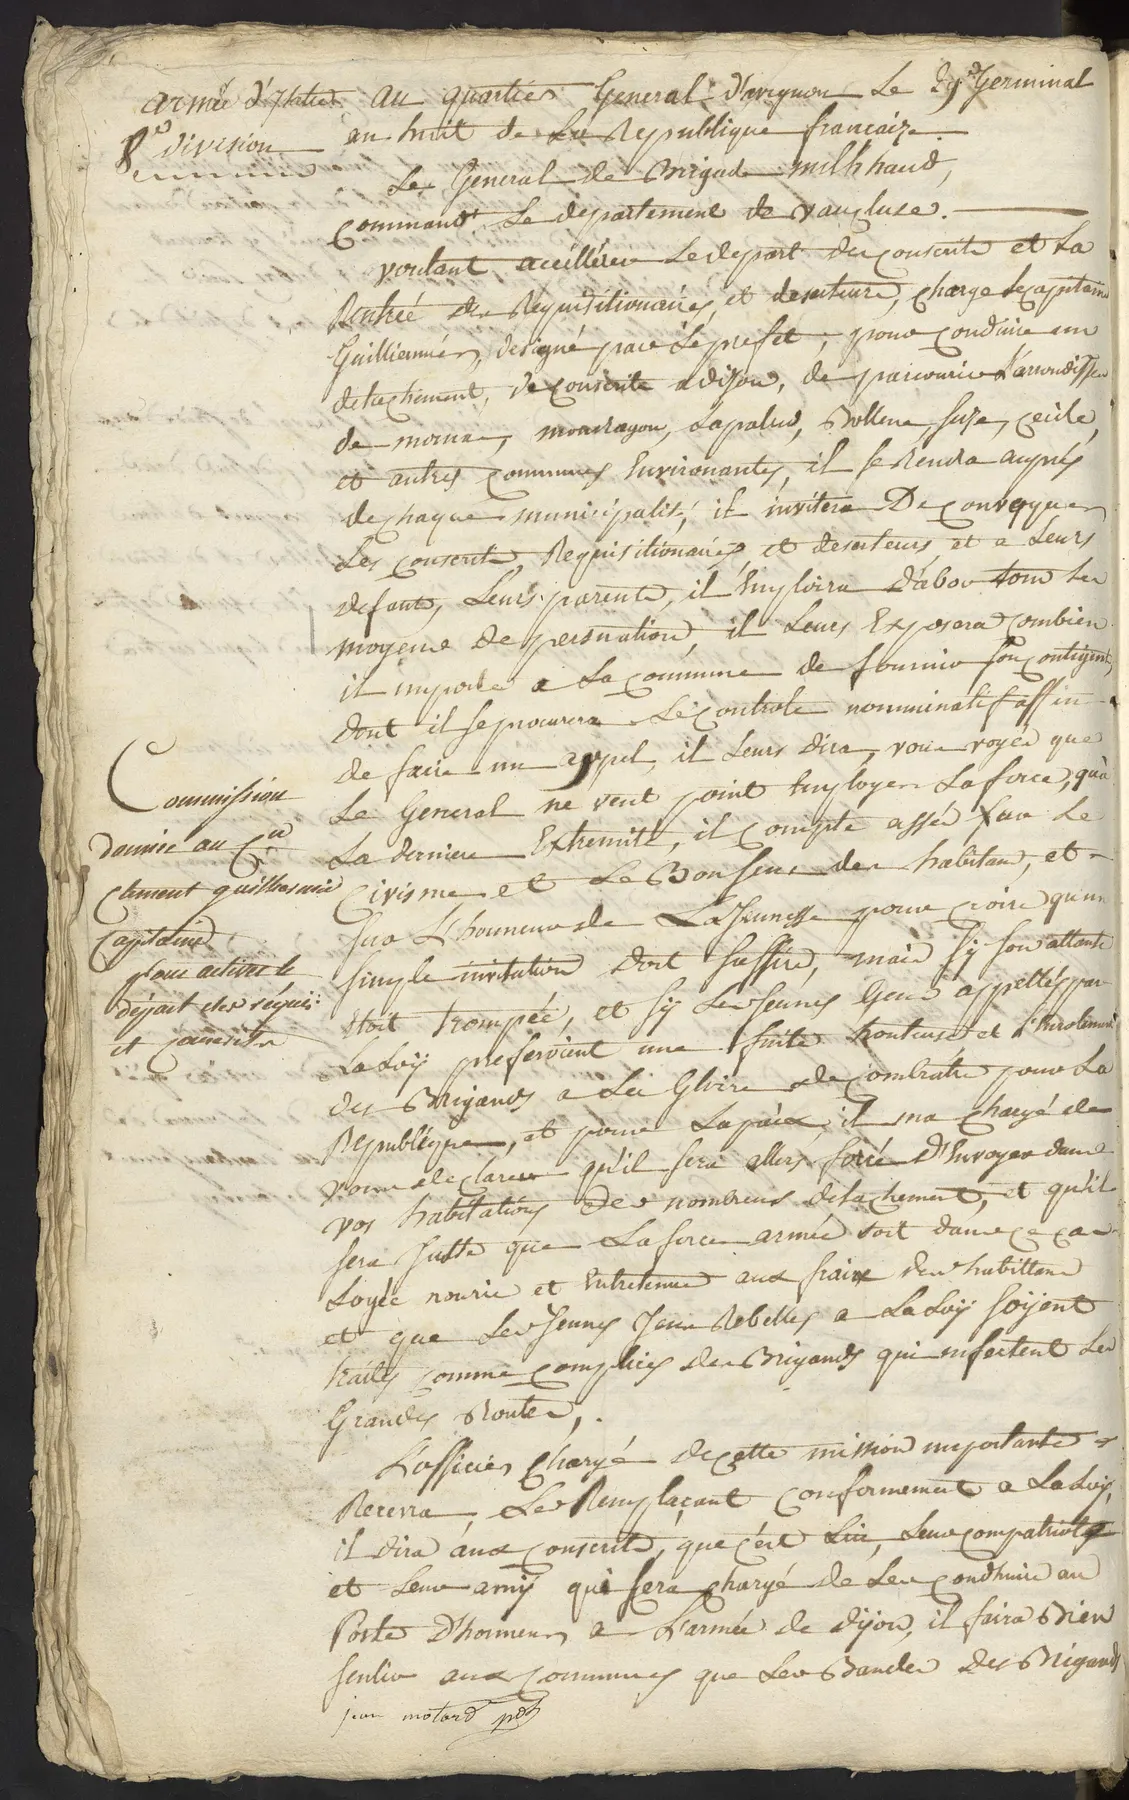 armée d'Italie
8e division
au quartier General d'avignon Le 29 Germinal
an huit de La Republique francaize.
Le General de Brigade milhaud,
command.t Le departement de vaucluse.
voulant accéllérer Le depart des conscrits et La
Rentrée des Requisitionaires, et deserteurs, charge Le capitaine
Guilliermier, designé par Le prefet, pour conduire un
detachement, de conscrits a dijon, de parcourir L'arrondissem
de mornas, mondragon, Lapalud, Bollene, Suze, Cécile,
et autres communes Environantes, il se rendra auprès
de chaque municipalité, il invitera De convoquer
Les conscrits, Requisitionaires, et deserteurs, et a Leurs
defauts, Leurs parents, il Employra d'abor tous Les
moyens de persuation, il Leurs Exposera combien
il importe a La commune de fournir son contigent,
dont il se procurera Le controle nominatif affin
de faire un appel, il Leurs dira, vous voyés que
Le General ne veut point Employer La force, qu'a
La derniere Extremité, il compte assés sur Le
civisme et Le Bon sens des habitans, et
sur L'honneur de La Jeunesse pour croire qu'un
simple invitation doit suffire, mais sy son attente
etoit trompée, et sy Les Jeunes Gens appellés par
La Loÿ preferoient une fuite honteuse et L'Enrolement
des Brigands a La Gloire de combatre pour La
Republique, et pour La paix, il ma chargé de
vous declarer qu'il sera allors forcé D'Envoyer dans
vos habitations des nombreux detachement, et qu'il
sera Juste que La force armée soit dans ce cas
Logée nourie et Entretenue aux fraix des habittans
et que Les Jeunes Gens Rebelles a La Loÿ soÿent
traités comme complices des Brigands qui infestent Les
Grandes Routes,.
Commission
donnée au C.en
Clement guilliermier
Capitaine
pour activer le
départ des réquis:
et conscrits
L'officier Chargé de cette mission importante
Recevra Les Remplaçant conformement a La Loÿ,
il dira aux conscrits, que c'est Lui, Leur compatriote
et Leur amÿ qui sera chargé de Les condhuire au
Poste D'honneur a L'armée de dijon, il faira Bien
sentir aux communes que Les Bandes des Brigands
jean motard pdt